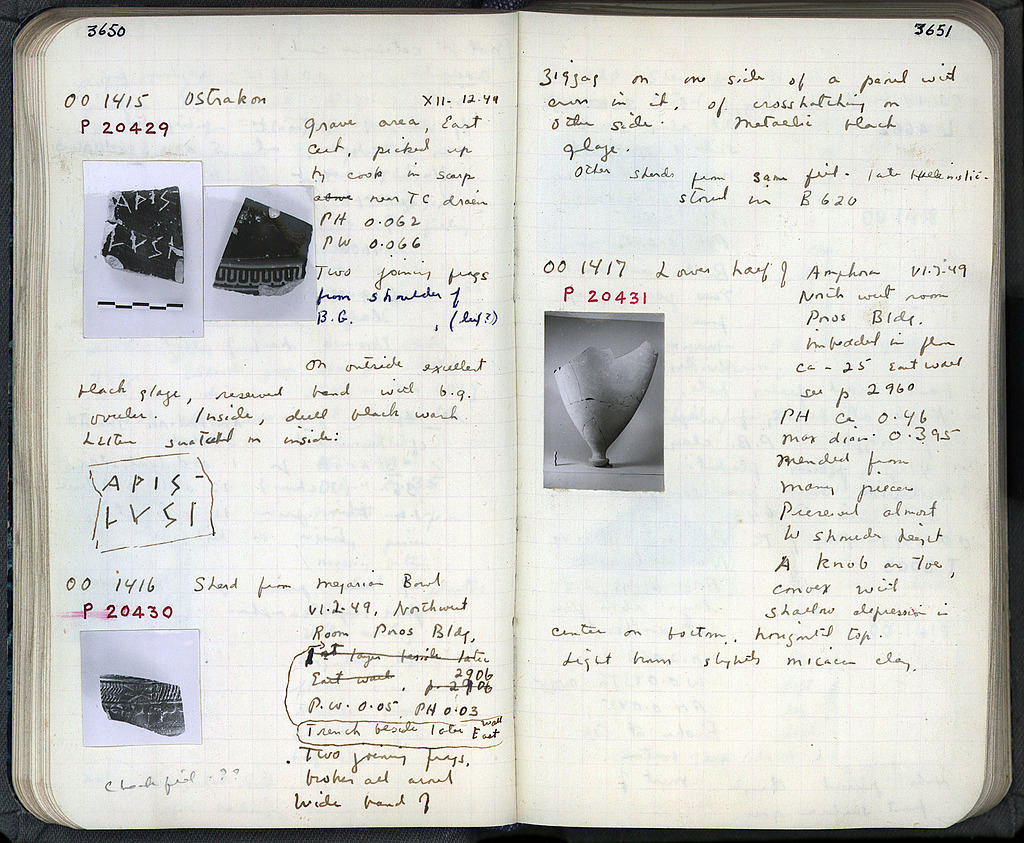 3650
OO 1415 Ostrakon XII-12-49
P 20429
Grave area, East
Cut, picked up
by cook in scarp
above near TC drain
PH 0.062
PW 0.066
Two joining frags
from shoulder of
B.G. , (lid?)
APIS
LVSI
On outside excellent
black glaze, reserved band with b.g.
ovules. Inside, dull black wash.
Letters scratched on inside:
APIS-
LVSI
OO 1416 Sherd from Megarian Bowl
P 20430
VI-2-49, Northwest
Room Poros Bldg,
1st layer beside later
East wall, p 2906
2906
P.W. 0.05, PH 0.03
Trench beside later East wall
Two joining frags,
broken all around
Wide band of
Check field - ??
3651
Zigzag on one side of a panel with
in it, of crosshatching on
other side. Metallic black
glaze.
Other sherds from same fill - late Hellenistic -
stored in B 620
OO 1417 Lower half of Amphora VI-7-49
P 20431
North west room
Poros Bldg.
Imbedded in floor
ca - 25 East wall
see p 2960
PH ca 0.46
max diam. 0.395
Mended from
many pieces
Preserved almost
to shoulder height
A knob or toe,
convex with
shallow depression in
center on bottom, horizontal top.
Light brown slightly micaceous clay.